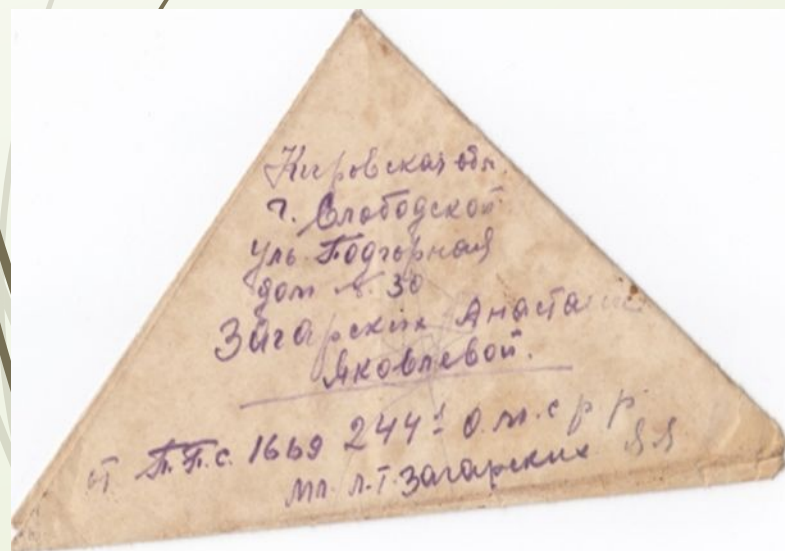 Кировская обл.
г. Слободской
уль. Подгорная
дом №. 30
Загарских Анастасии
Яковлевой.
от П.П.С. 1669 244
мл. л-т. Загарских